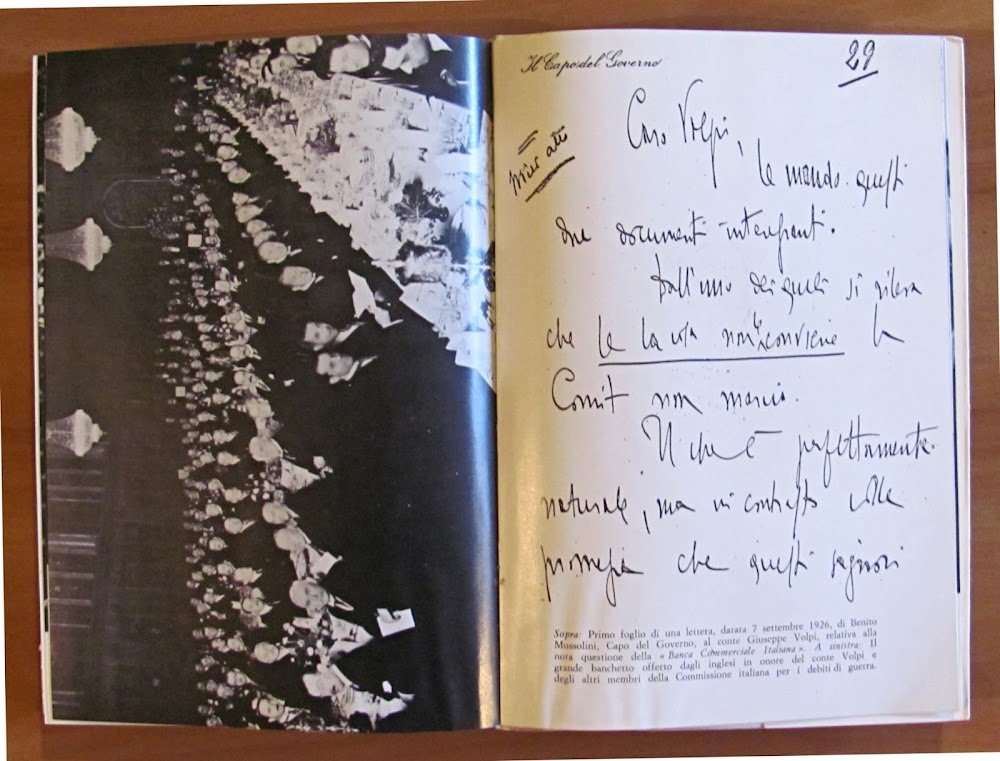 Il Capo del Governo
29
Caro Volpi,
le mando questi
due documenti interessanti.
Dall'uno dei quali si rileva
che se la cosa non le conviene la
Comit non marcia.
Il che è perfettamente
naturale, ma in contrasto colle
promesse che questi signori
Sopra: Primo foglio di una lettera, datata 7 settembre 1926, di Benito
Mussolini, Capo del Governo, al conte Giuseppe Volpi, relativa alla
nota questione della « Banca Commerciale Italiana ». A sinistra: Il
grande banchetto offerto dagli inglesi in onore del conte Volpi e
degli altri membri della Commissione italiana per i debiti di guerra.